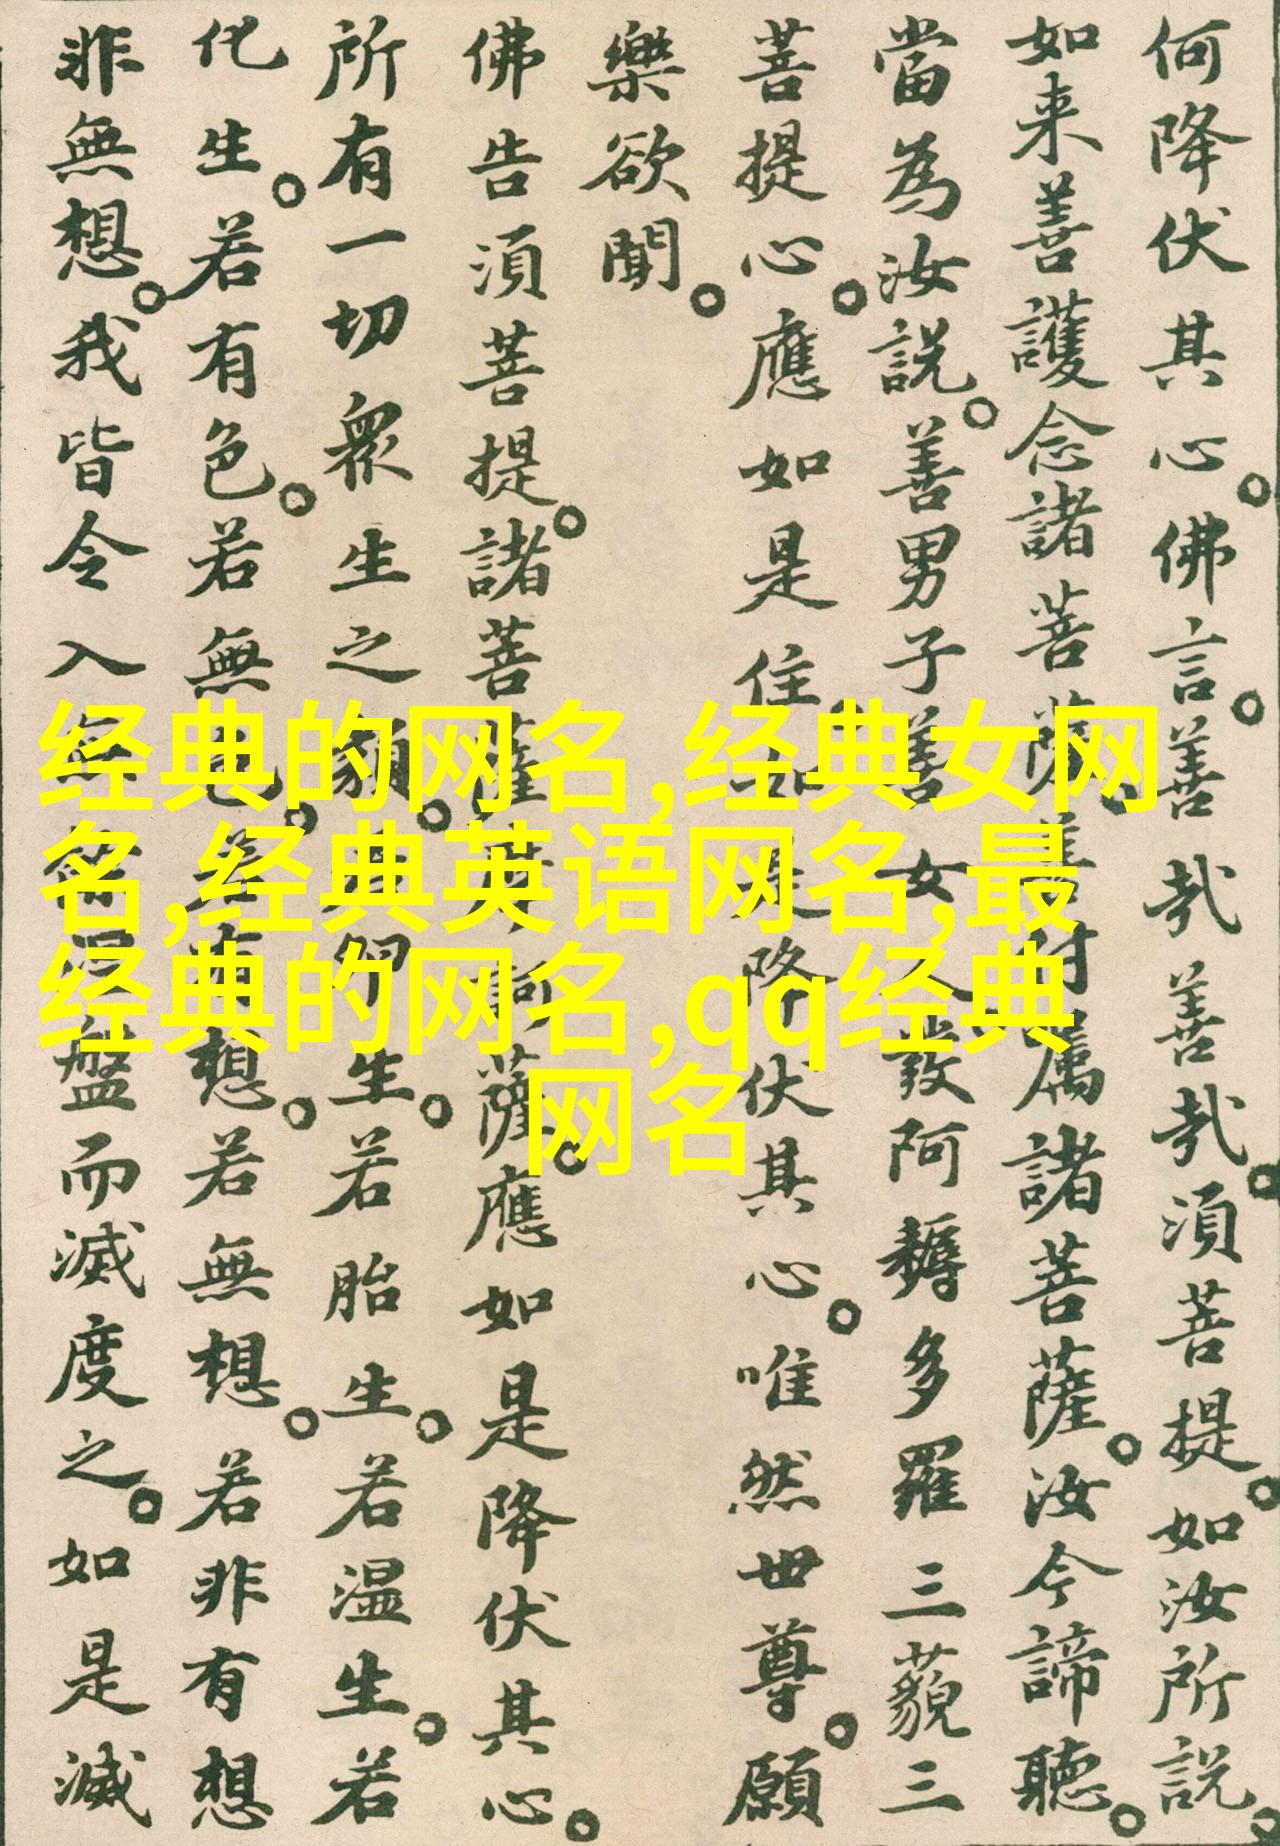 何降伏其心。佛言。善哉善哉。須菩提。如汝所說。
如来善護念諸菩薩。善付属諸菩薩。汝今諦聽。
當為汝説。善男子善女人發阿耨多羅三藐三
菩提心。應如是住。如是降伏其心。唯然世尊。願
樂欲聞。
佛告須菩提。諸菩薩摩訶薩。應如是降伏其心。
所有一切衆生之類。若卵生。若胎生。若温生。若
化生。若有色。若無色。若有想。若無想。若非有想
非無想。我皆令入無餘涅盤而滅度之。如是滅
经典的网名,经典女网
名,经典英语网名,最
经典的网名,qq经典
网名